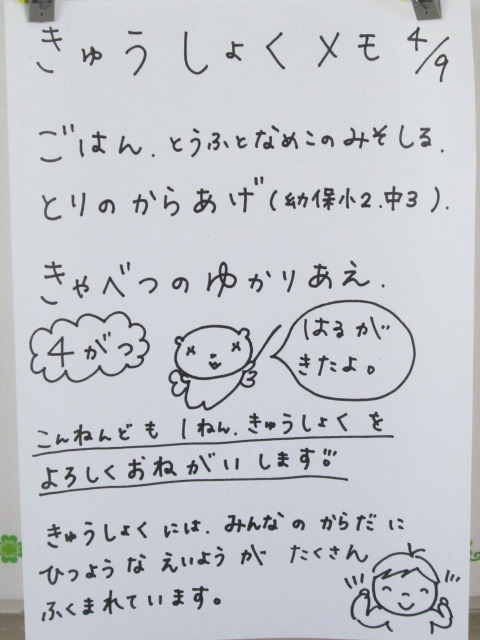 きゅうしょくメモ 4/9
ごはん、とうふとなめこのみそしる、
とりのからあげ(幼保小2、中3)、
きゃべつのゆかりあえ、
4がつ
はるが
きたよ。
こんねんども1ねん、きゅうしょくを
よろしくおねがいします!!
きゅうしょくには、みんなのからだに
ひつような えいようが たくさん
ふくまれています。